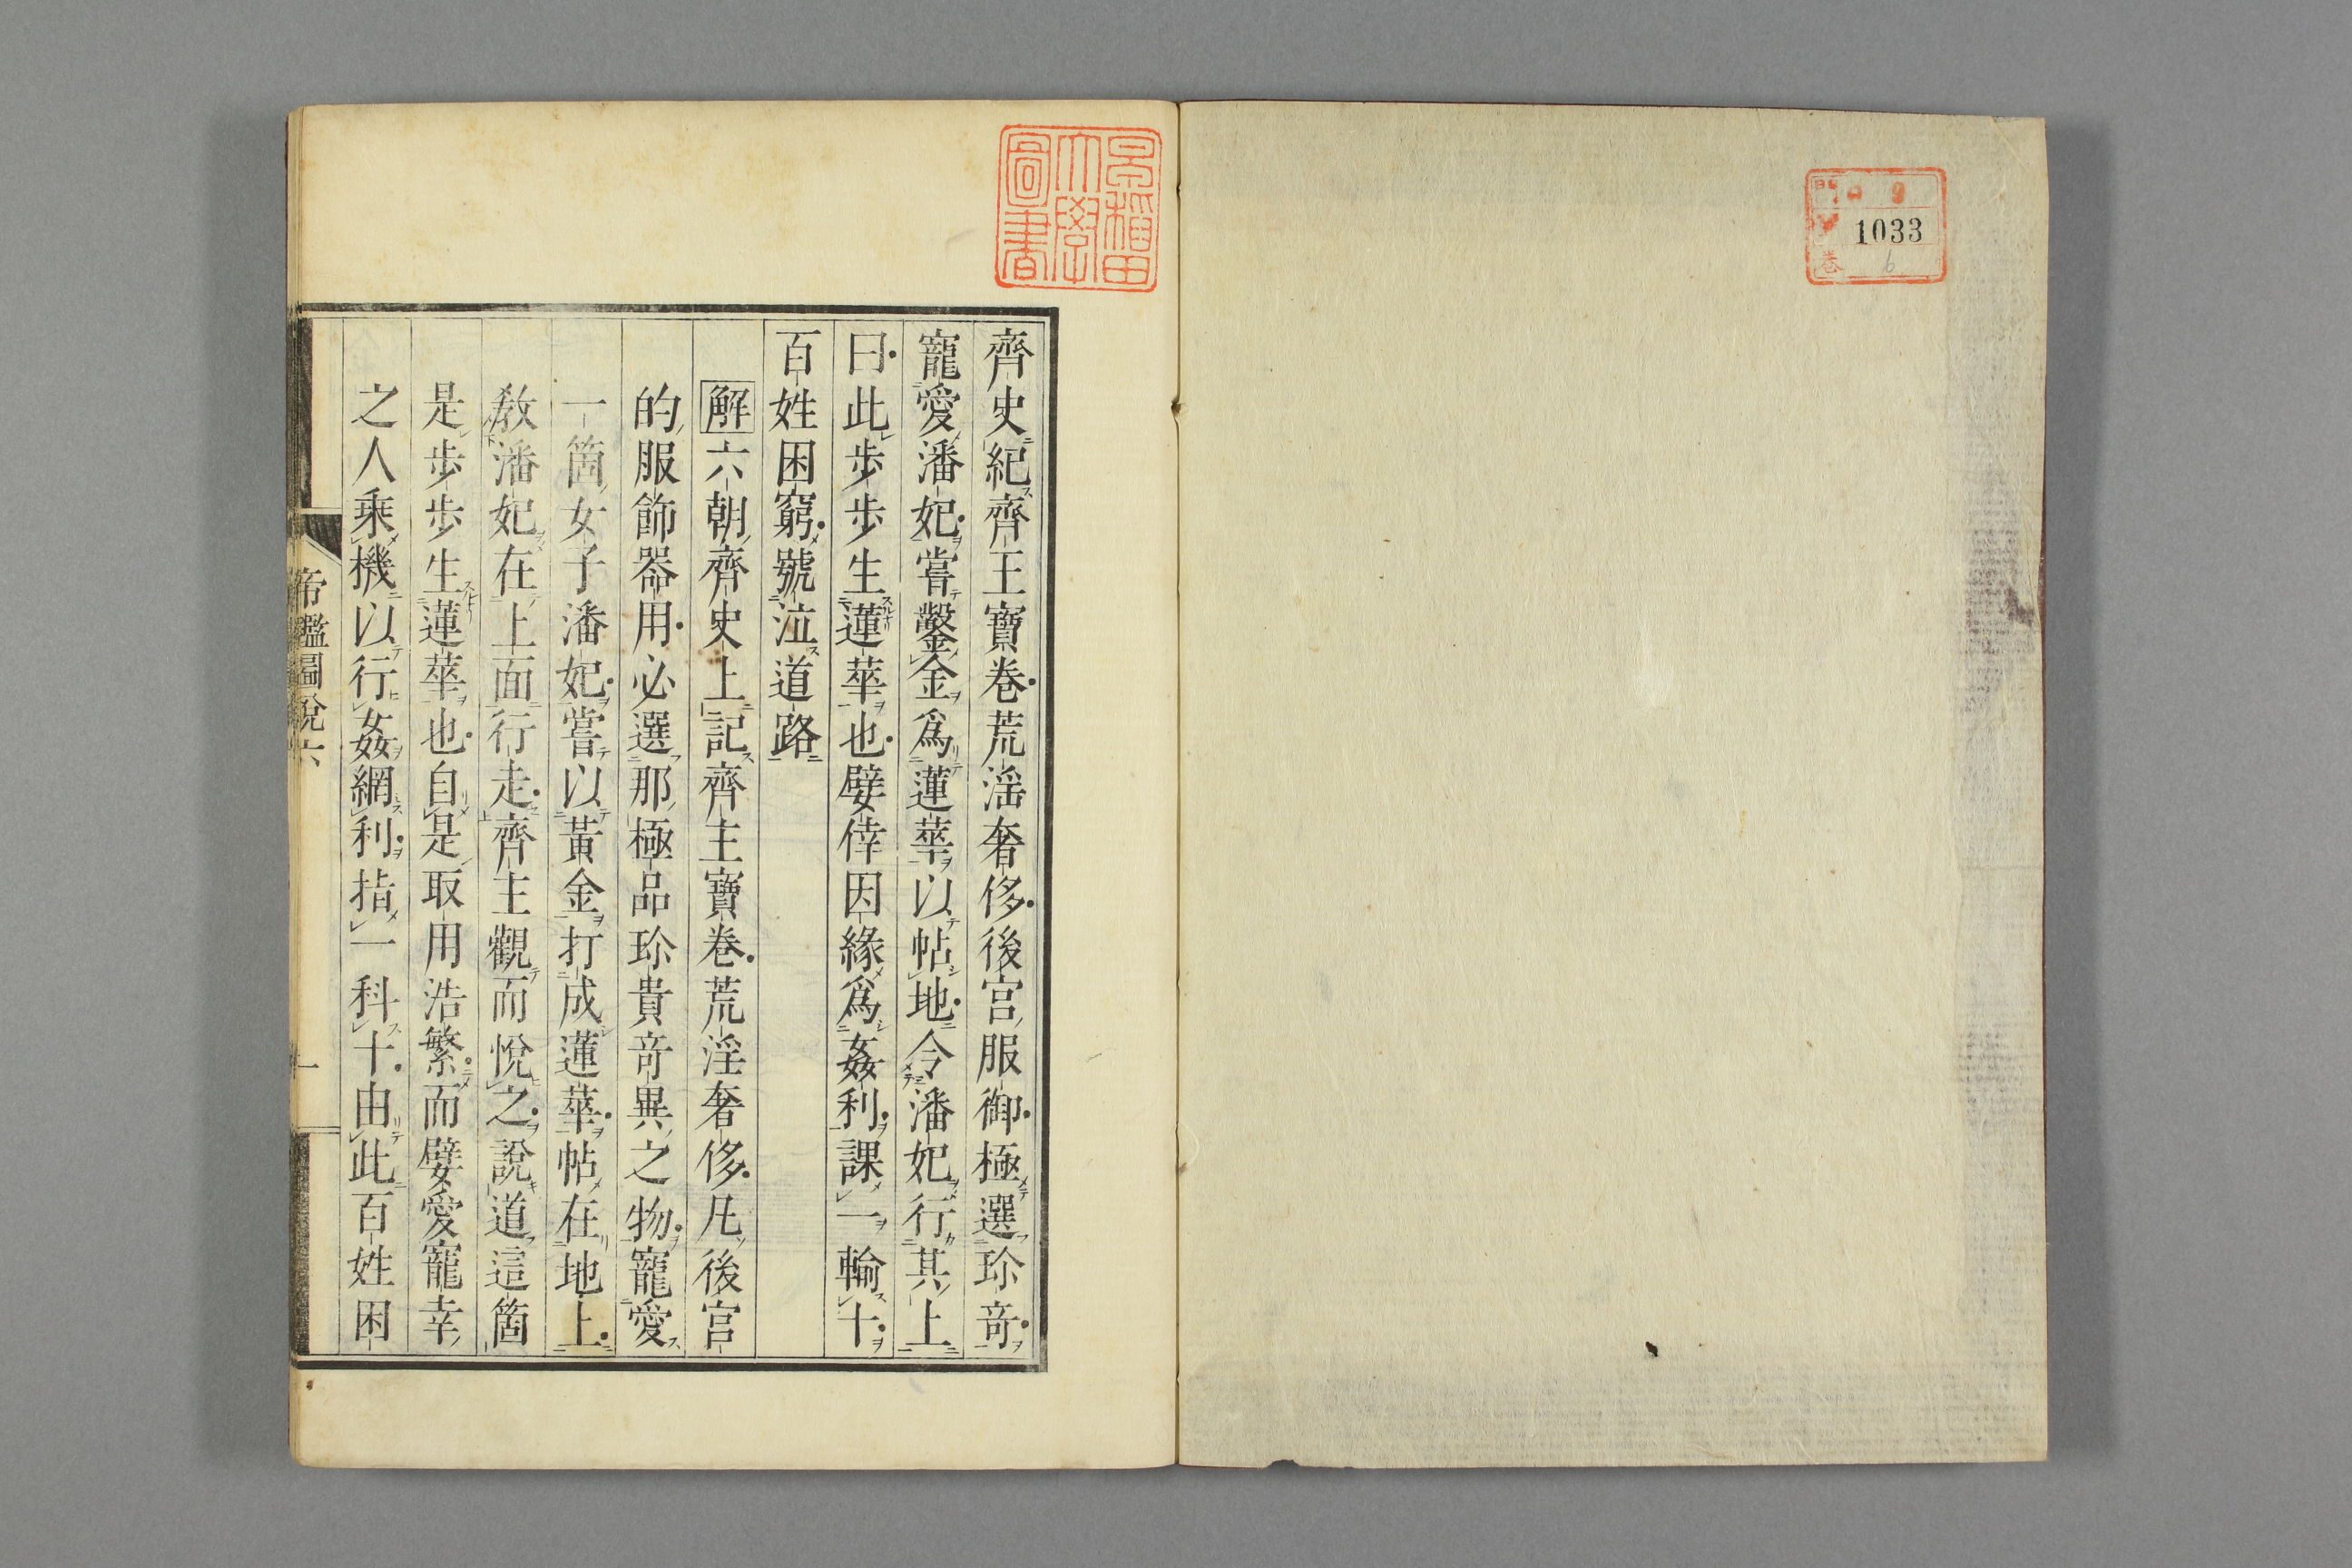 門 ロ 9
1033
卷 6
早稻田大學圖書
齊史紀齊王寶卷荒淫奢侈後宮服御極選珍奇
寵愛潘妃嘗鑿金爲蓮華以帖地令潘妃行其上
曰此步步生蓮華也嬖倖因緣爲姦利課一輸十
百姓困窮號泣道路
解六朝齊史上記齊主寶卷荒淫奢侈凡後宮
的服飾器用必選那極品珍貴奇異之物寵愛
一箇女子潘妃嘗以黃金打成蓮華帖在地上
教潘妃在上面行走齊主觀而悅之說道這箇
是步步生蓮華也自是取用浩繁而嬖愛寵幸
之人乘機以行姦網利指一科十由此百姓困
帝鑑圖說六
一